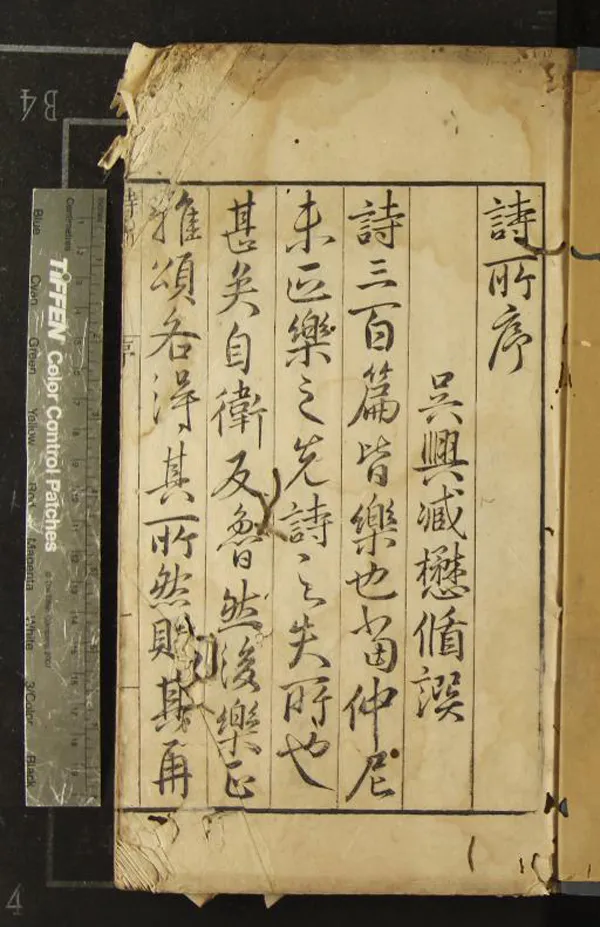 詩所序
吳興臧懋循譔
詩三百篇皆樂也當仲尼
未正樂之先詩之失所也
甚矣自衛反魯然後樂正
雅頌各得其所然則其再
B4
4
TIFFEN Color Control Patches
© The Tiffen Company, 2007
Centimetres
Blue Cyan Green Yellow Red Magenta White 3/Color Black